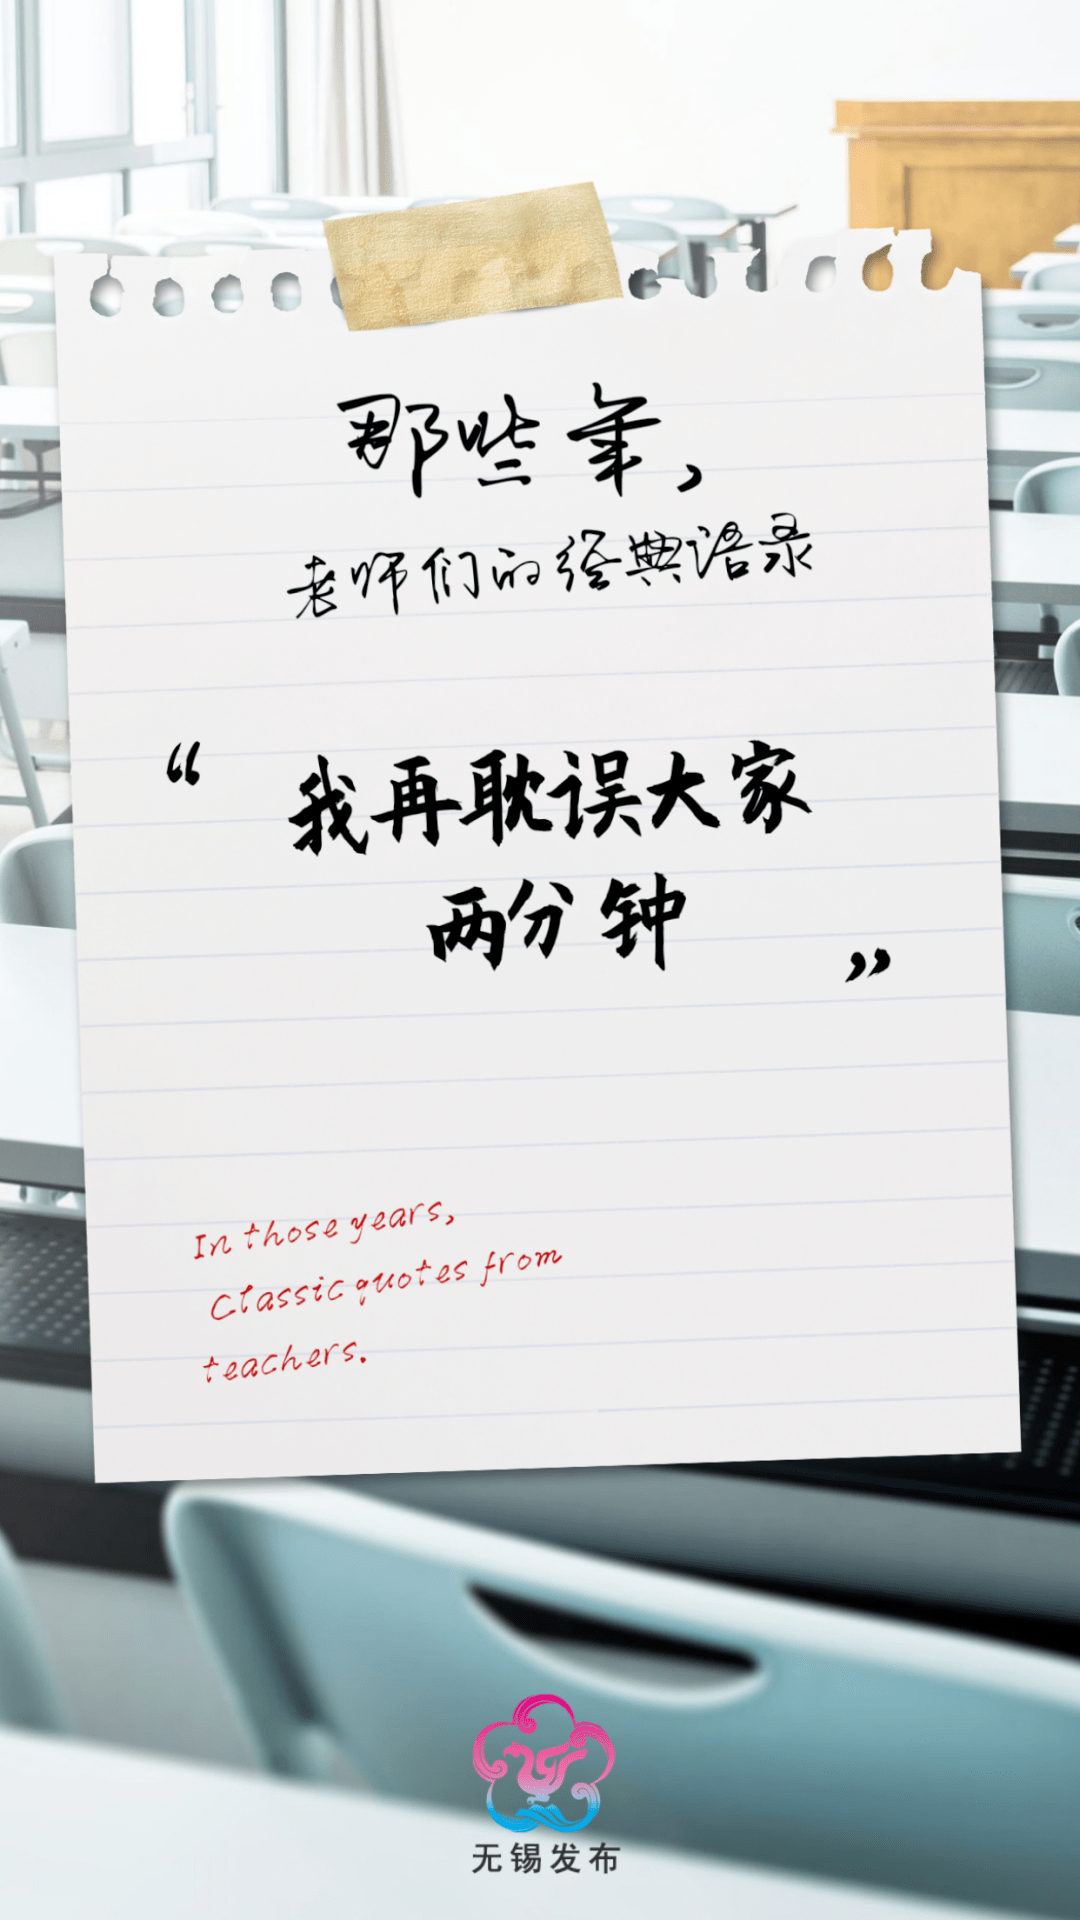 那些年,
老师们的经典语录
“我再耽误大家
两分钟”
In those years,
Classic quotes from
teachers.
无锡发布